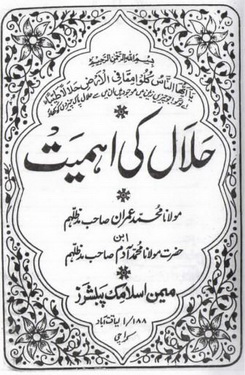 بسم الله الرحمن الرحيم
يا ايها الناس كلوا مما في الارض حلالا طيبا
حلال کی اہمیت
مولانا محمد عمران صاحب مدظلہم
ابن
حضرت مولانا محمد آدم صاحب مدظلہم
میمن اسلامک پبلشرز
۱/۱۸۸ لیاقت آباد
کراچی